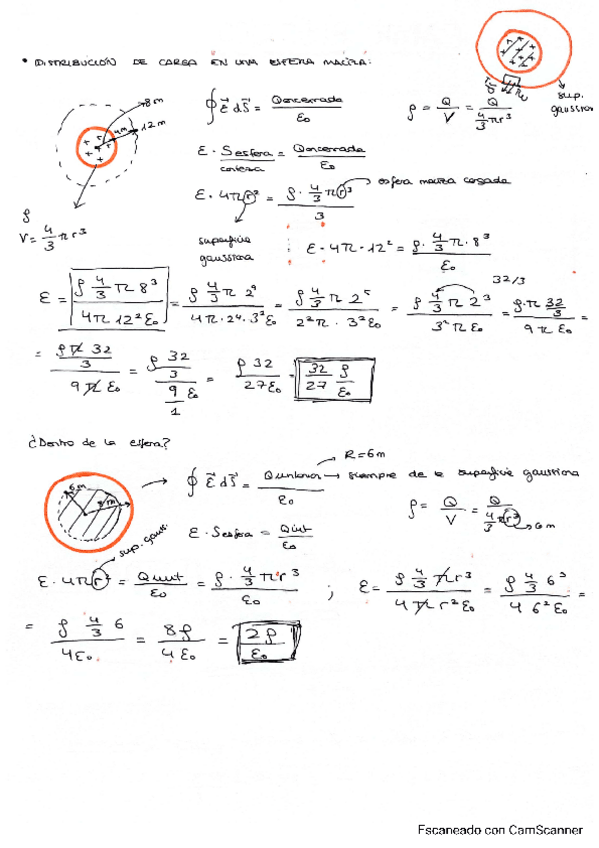 • DISTRIBUCIÓN DE CARGA EN UNA ESFERA MACIZA:
8m
4m
12m
∮ E⃗ dS⃗ = Qencerrada / ε₀
ρ = Q/V = Q / (4/3 πr³)
sup. gaussiana
E · Sesfera = Qencerrada / ε₀
corteza
E · 4π r² = ρ · 4/3 π r³ / 3
esfera maciza cargada
ρ
V = 4/3 πr³
superficie gaussiana
E · 4π · 12² = ρ · 4/3 π · 8³ / ε₀
E = ρ 4/3 π 8³ / 4π 12² ε₀ = ρ 4/3 π 2⁹ / 4π · 2⁴ · 3² ε₀ = ρ 4/3 π 2⁵ / 2²π · 3² ε₀ = ρ 4/3 π 2³ / 3² π ε₀ = ρ · π 32/3 / 9 π ε₀ =
32/3
= ρ π 32/3 / 9 π ε₀ = ρ 32/3 / 9/1 ε₀ = ρ 32 / 27 ε₀ = 32/27 ρ/ε₀
¿Dentro de la esfera?
R = 6m
6m
∮ E⃗ dS⃗ = Qinterior / ε₀ → siempre de la superficie gaussiana
ρ = Q/V = Q / (4/3 π r³) → 6m
E · Sesfera = Qint / ε₀
sup. gauss.
E · 4π r² = Qint / ε₀ = ρ · 4/3 π r³ / ε₀ ; E = ρ 4/3 π r³ / 4 π r² ε₀ = ρ 4/3 6³ / 4 6² ε₀ =
= ρ 4/3 6 / 4ε₀ = 8ρ / 4 ε₀ = 2ρ / ε₀
Escaneado con CamScanner